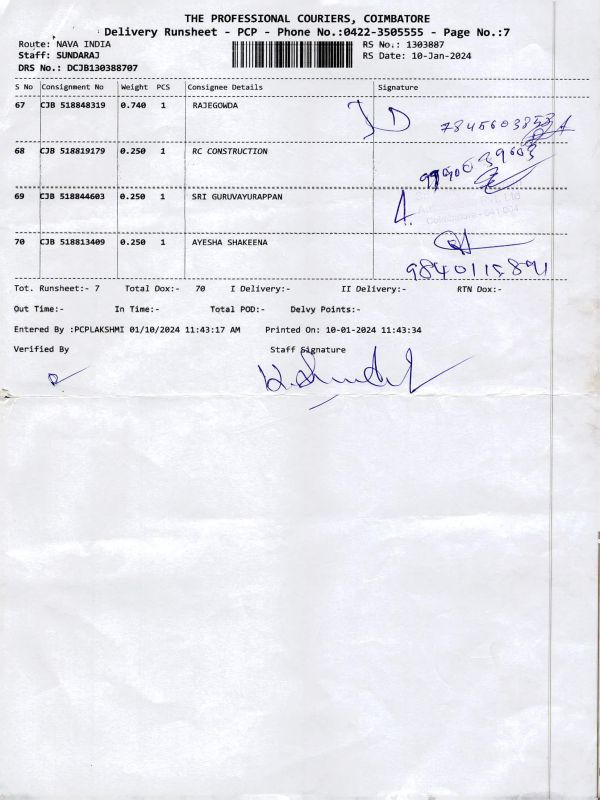 THE PROFESSIONAL COURIERS, COIMBATORE
Delivery Runsheet - PCP - Phone No.:0422-3505555 - Page No.:7
Route: NAVA INDIA RS No.: 1303887
Staff: SUNDARAJ RS Date: 10-Jan-2024
DRS No.: DCJB130388707
S No Consignment No Weight PCS Consignee Details Signature
67 CJB 518848319 0.740 1 RAJEGOWDA
7845603853
68 CJB 518819179 0.250 1 RC CONSTRUCTION
69 CJB 518844603 0.250 1 SRI GURUVAYURAPPAN
70 CJB 518813409 0.250 1 AYESHA SHAKEENA
9840115891
Tot. Runsheet:- 7 Total Dox:- 70 I Delivery:- II Delivery:- RTN Dox:-
Out Time:- In Time:- Total POD:- Delvy Points:-
Entered By :PCPLAKSHMI 01/10/2024 11:43:17 AM Printed On: 10-01-2024 11:43:34
Verified By Staff Signature